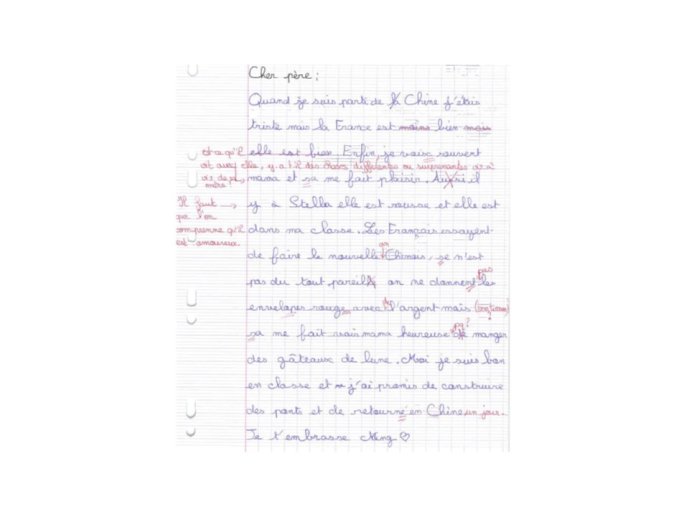 Cher père :
Quand je suis parti de la Chine j'étais
triste mais la France est moins bien mais
et ce qu'il elle est bien. Enfin, je vais souvent
elle, y a t'il des choses différentes ou surprenantes
mama et sa me fait plaisir. Aussi il
Il faut → y a Stella elle est rousse et elle est
que l'on dans ma classe. Les Français essayent
comprenne qu'il
est amoureux. de faire le nouvelle an Chinois, se n'est
pas du tout pareil on ne donnent pas les
envelopes rouge avec de l'argent mais (continue)
sa me fait vais mama heureuse de manger
des gâteaux de lune. Moi je suis bon
en classe et j'ai promis de construire
des ponts et de retourné en Chine un jour.
Je t'embrasse Ming ♡